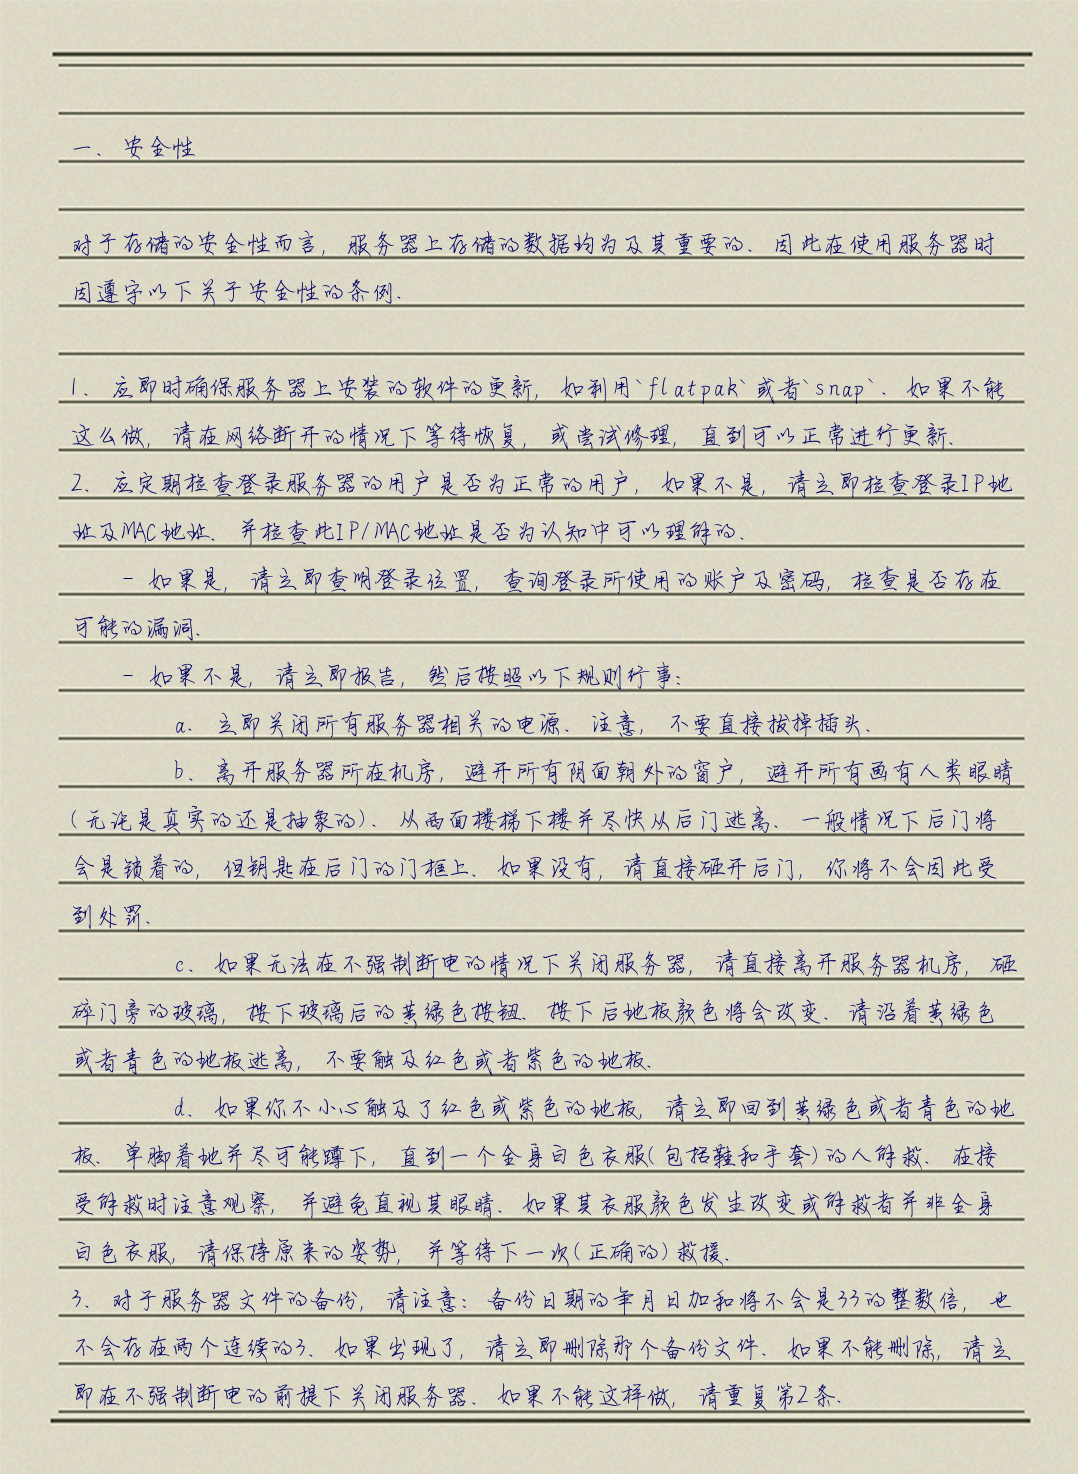 一. 安全性
对于存储的安全性而言, 服务器上存储的数据均为及其重要的. 因此在使用服务器时
因遵守以下关于安全性的条例.
1. 应即时确保服务器上安装的软件的更新, 如利用`flatpak`或者`snap`. 如果不能
这么做, 请在网络断开的情况下等待恢复, 或尝试修理, 直到可以正常进行更新.
2. 应定期检查登录服务器的用户是否为正常的用户, 如果不是, 请立即检查登录IP地
址及MAC地址. 并检查此IP/MAC地址是否为认知中可以理解的.
- 如果是, 请立即查明登录位置, 查询登录所使用的账户及密码, 检查是否存在
可能的漏洞.
- 如果不是, 请立即报告, 然后按照以下规则行事:
a. 立即关闭所有服务器相关的电源. 注意, 不要直接拔掉插头.
b. 离开服务器所在机房, 避开所有阴面朝外的窗户, 避开所有画有人类眼睛
(无论是真实的还是抽象的). 从西面楼梯下楼并尽快从后门逃离. 一般情况下后门将
会是锁着的, 但钥匙在后门的门框上. 如果没有, 请直接砸开后门, 你将不会因此受
到处罚.
c. 如果无法在不强制断电的情况下关闭服务器, 请直接离开服务器机房, 砸
碎门旁的玻璃, 按下玻璃后的黄绿色按钮. 按下后地板颜色将会改变. 请沿着黄绿色
或者青色的地板逃离, 不要触及红色或者紫色的地板.
d. 如果你不小心触及了红色或紫色的地板, 请立即回到黄绿色或者青色的地
板. 单脚着地并尽可能蹲下, 直到一个全身白色衣服(包括鞋和手套)的人解救. 在接
受解救时注意观察, 并避免直视其眼睛. 如果其衣服颜色发生改变或解救者并非全身
白色衣服, 请保持原来的姿势, 并等待下一次(正确的)救援.
3. 对于服务器文件的备份, 请注意: 备份日期的年月日加和将不会是33的整数倍, 也
不会存在两个连续的3. 如果出现了, 请立即删除那个备份文件. 如果不能删除, 请立
即在不强制断电的前提下关闭服务器. 如果不能这样做, 请重复第2条.